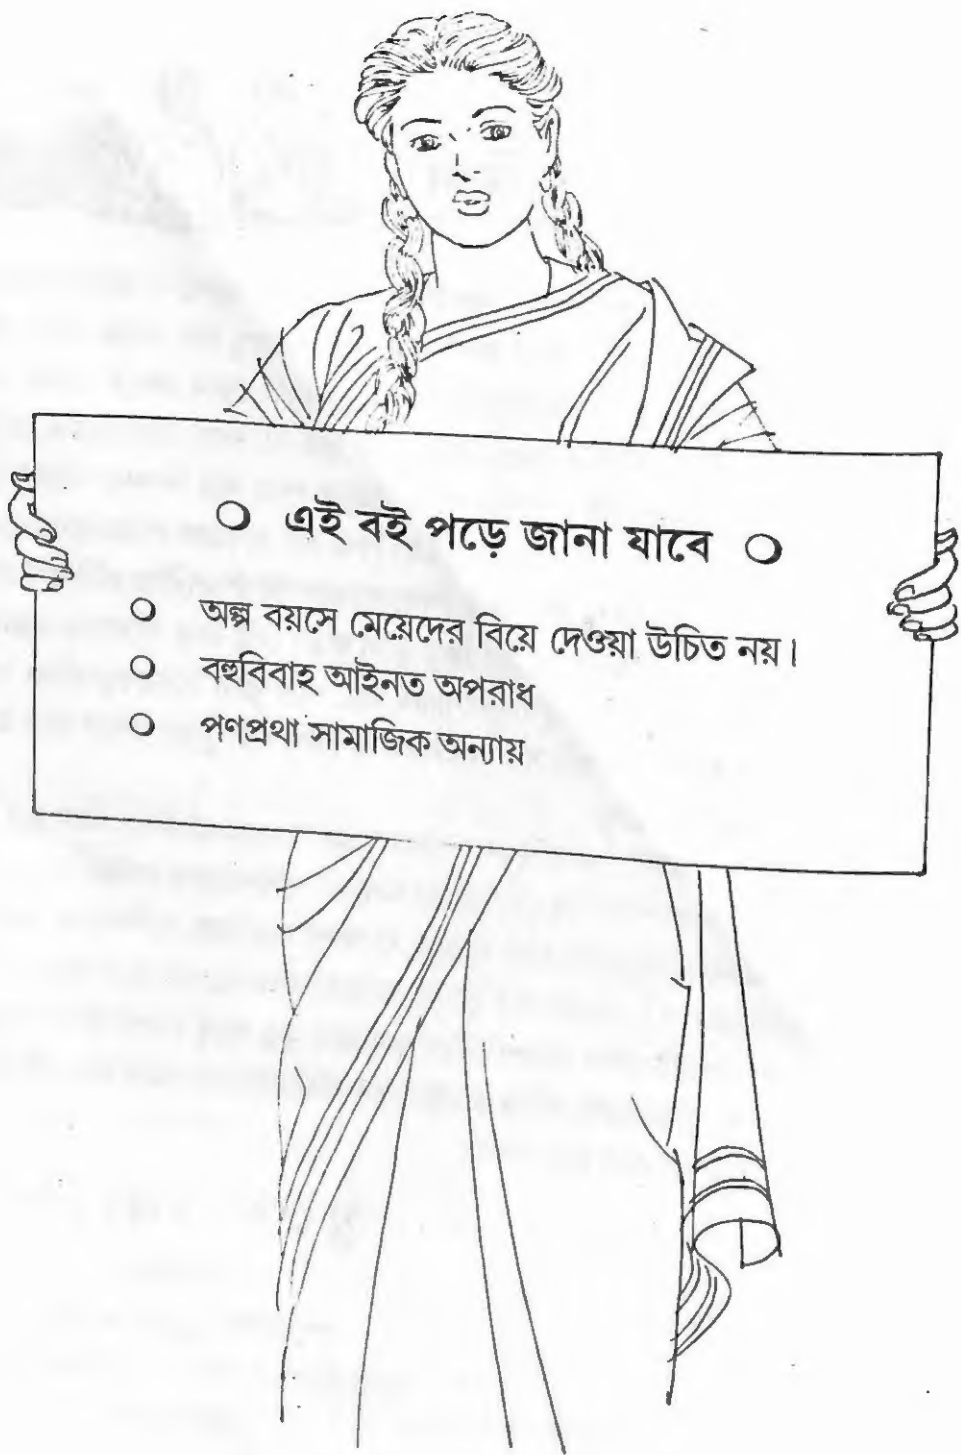 ○ এই বই পড়ে জানা যাবে ○
○ অল্প বয়সে মেয়েদের বিয়ে দেওয়া উচিত নয়।
○ বহুবিবাহ আইনত অপরাধ
○ পণপ্রথা সামাজিক অন্যায়